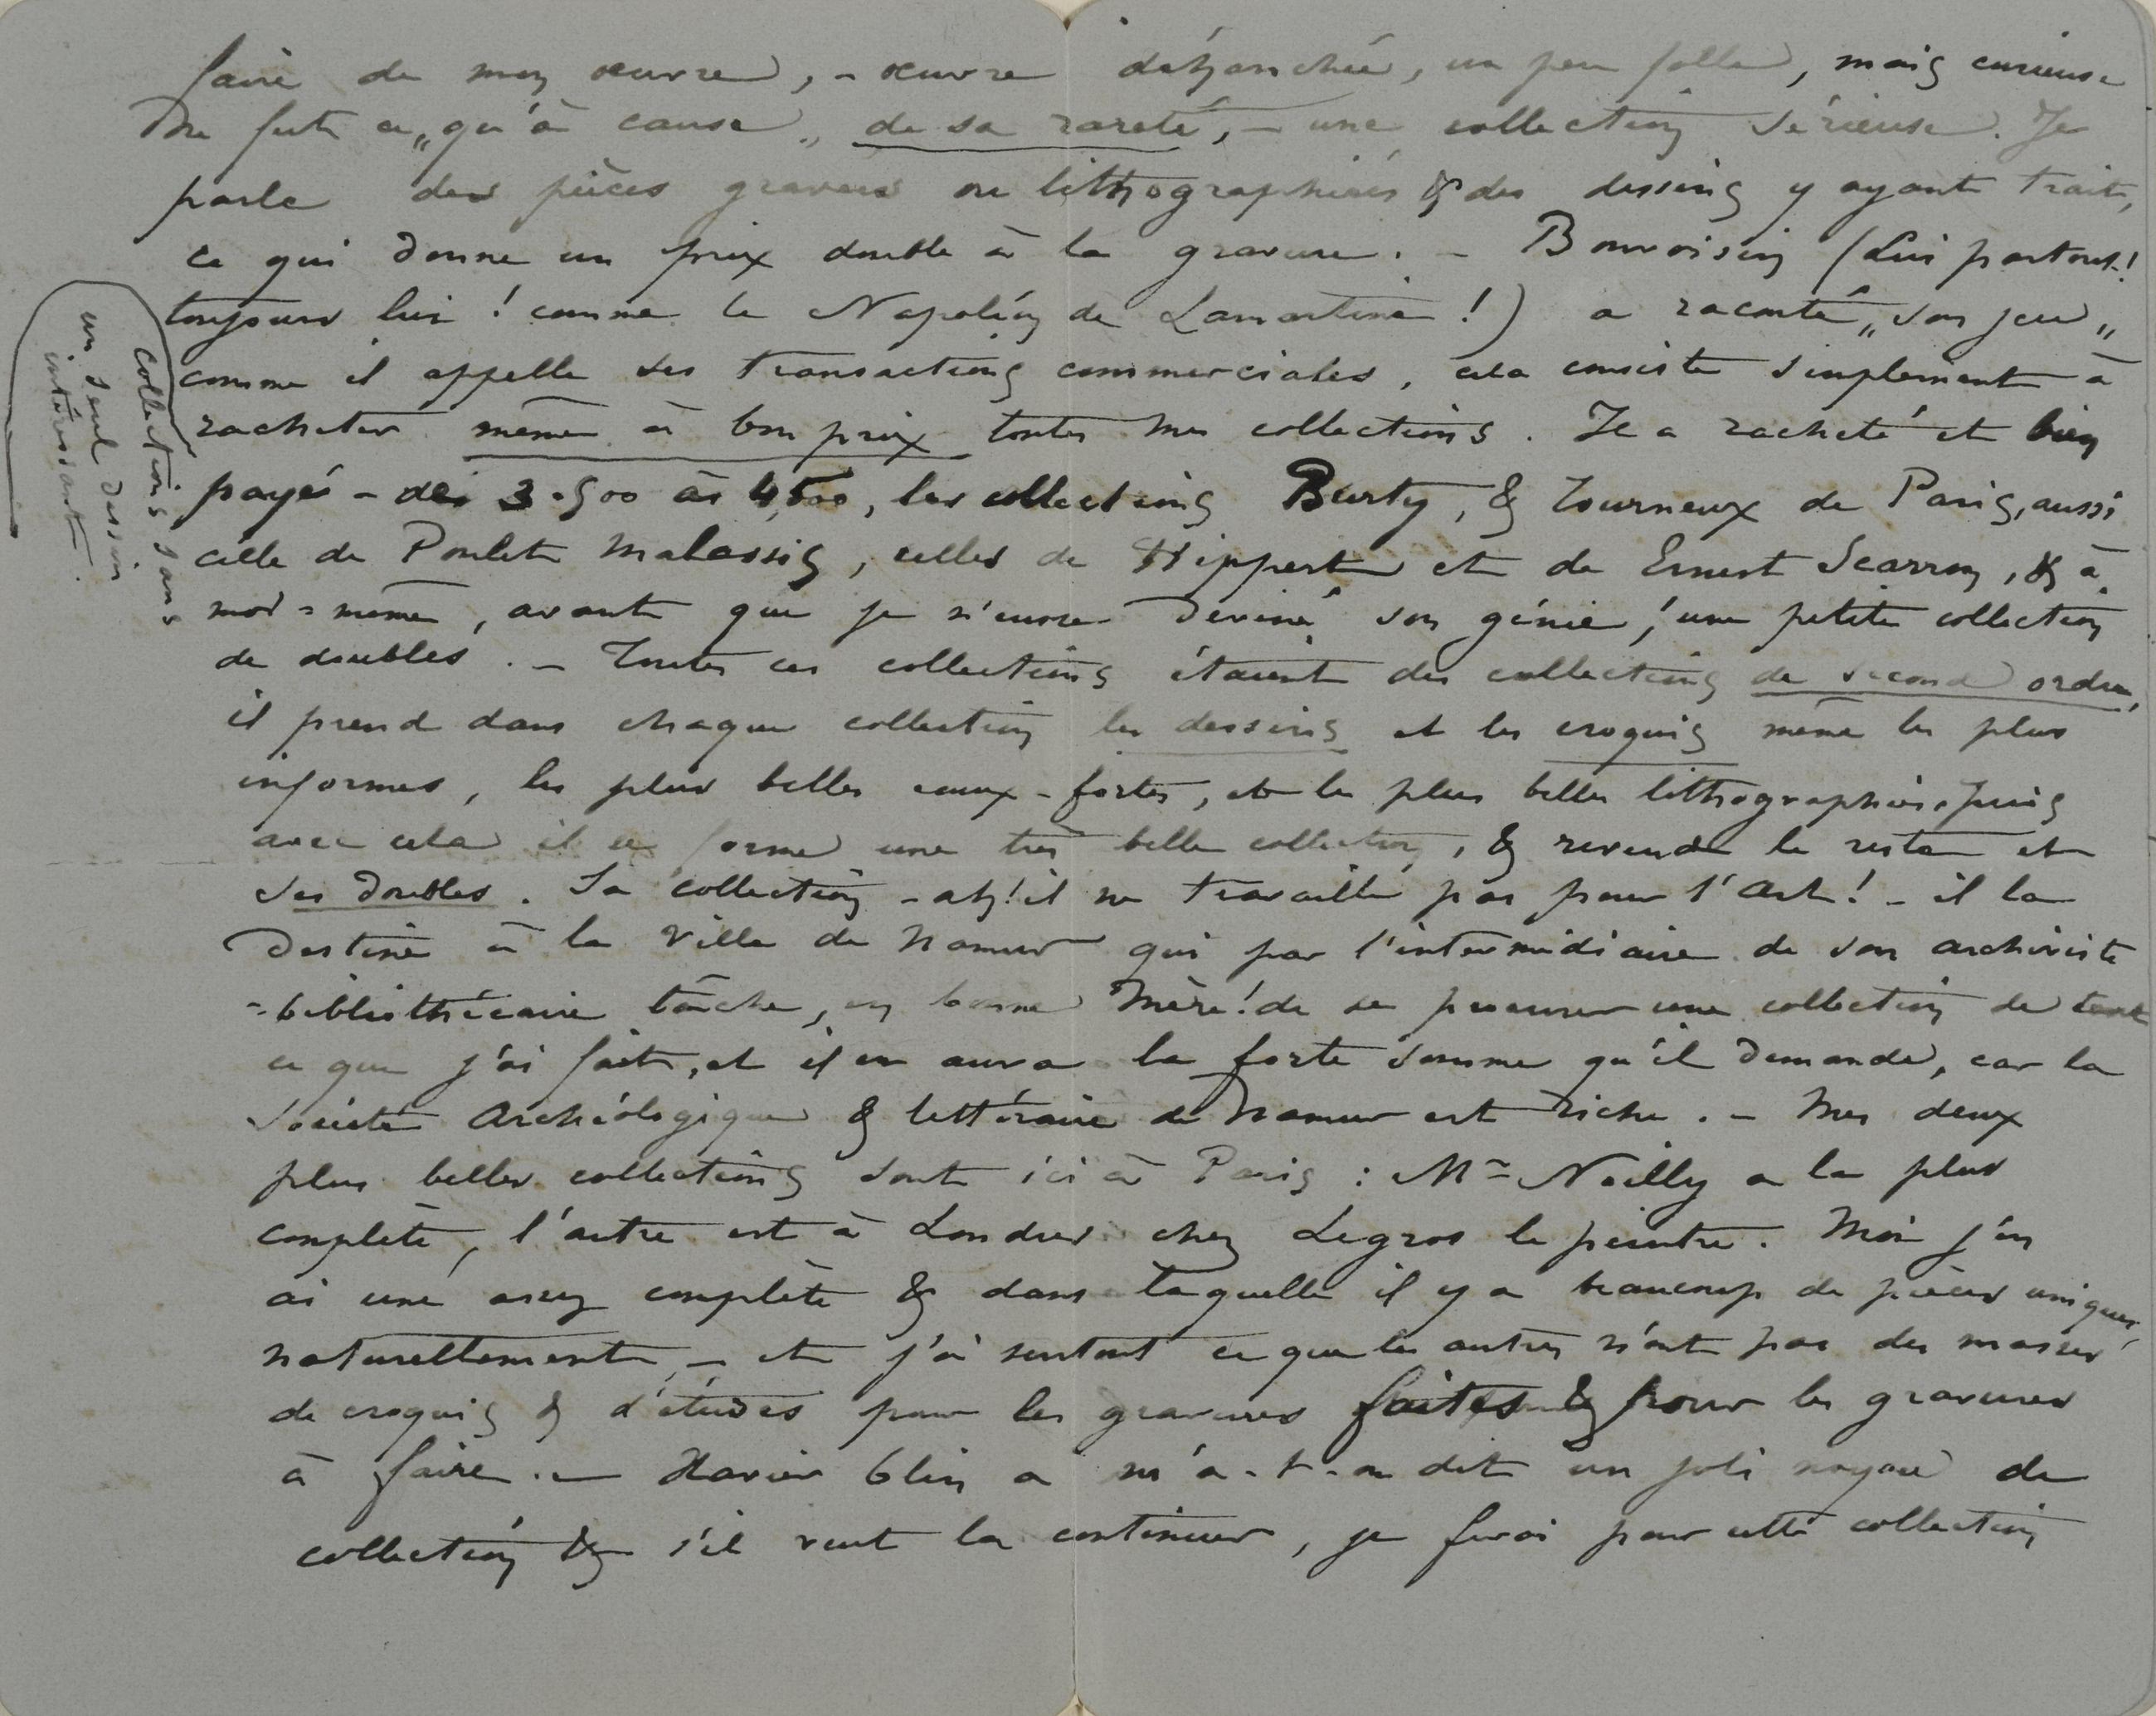 faire de mon œuvre, – œuvre déhanchée, un peu folle, mais curieuse
Ne fut ce „qu'à cause„ de sa rareté, – une collection sérieuse. Je
parle des pièces gravées ou lithographiées & des dessins y ayant trait,
ce qui donne un prix double à la gravure. – Bonvoisin (Lui partout!
toujours lui ! comme le Napoléon de Lamartine !) a raconté „son jeu„
comme il appelle ses transactions commerciales, cela consiste simplement à
racheter même à bon prix toutes mes collections. Il a racheté et bien
payé – de 3.500 à 4500, les collections Burty, & Tourneux de Paris, aussi
celle de Poulet Malassis, celles de Hippert et de Ernest Scarron, & à
moi=même, avant que je n'eusse deviné son génie, une petite collection
de doubles. – Toutes ces collections étaient des collections de second ordre,
il prend dans chaque collection les dessins et les croquis même les plus
informes, les plus belles eaux-fortes, et les plus belles lithographies. puis
avec cela il se forme une très belle collection, & revend le reste et
ses doubles. Sa collection – ah! il ne travaille pas pour l'Art! – il la
destine à la Ville de Namur qui par l'intermédiaire de son archiviste
=bibliothécaire tâche, en bonne Mère! de se procurer une collection de tout
ce que j'ai fait, et il en aura la forte somme qu'il demande, car la
Société Archéologique & littéraire de Namur est riche. – Mes deux
plus belles collections sont ici à Paris : Mr Noilly a la plus
complète, l'autre est à Londres chez Legros le peintre. Moi j'en
ai une assez complète & dans laquelle il y a beaucoup de pièces uniques,
naturellement, – et j'ai surtout ce que les autres n'ont pas des masses
de croquis & d'études pour les gravures faites & pour les gravures
à faire. – Xavier Olin a m'a-t-on dit un joli noyau de
collection & s'il veut la continuer, je ferai pour cette collection
collections sans
un seul dessin
intéressant.